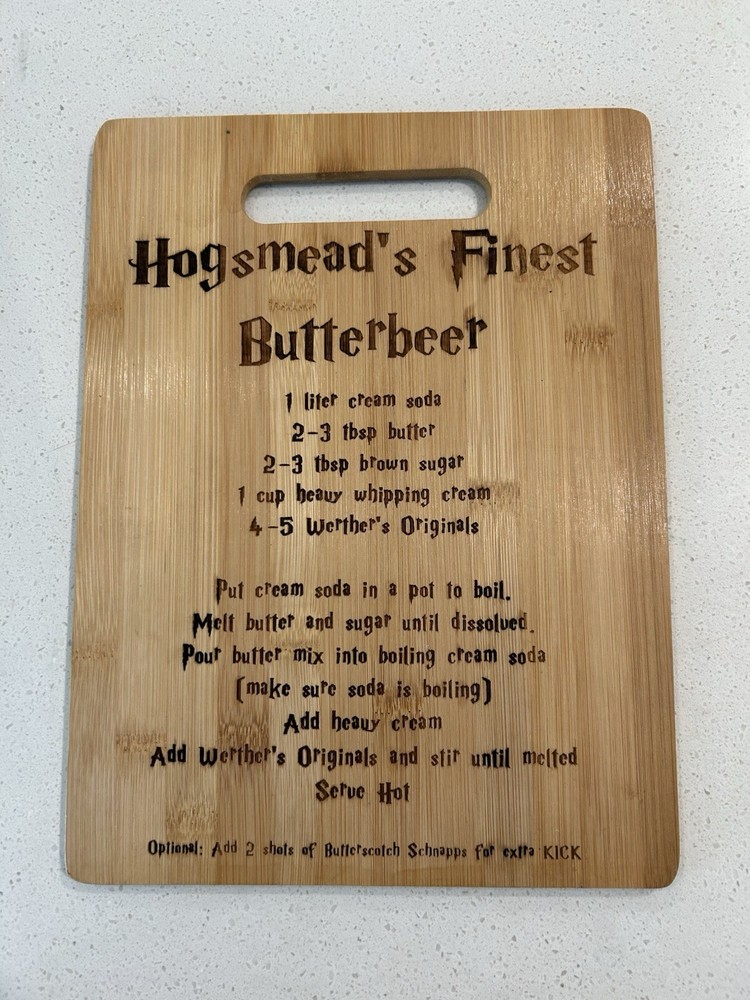 Hogsmead's Finest
Butterbeer
1 liter cream soda
2-3 tbsp butter
2-3 tbsp brown sugar
1 cup heavy whipping cream
4-5 Werther's Originals
Put cream soda in a pot to boil.
Melt butter and sugar until dissolved.
Pour butter mix into boiling cream soda
(make sure soda is boiling)
Add heavy cream
Add Werther's Originals and stir until melted
Serve Hot
Optional: Add 2 shots of Butterscotch Schnapps for extra KICK